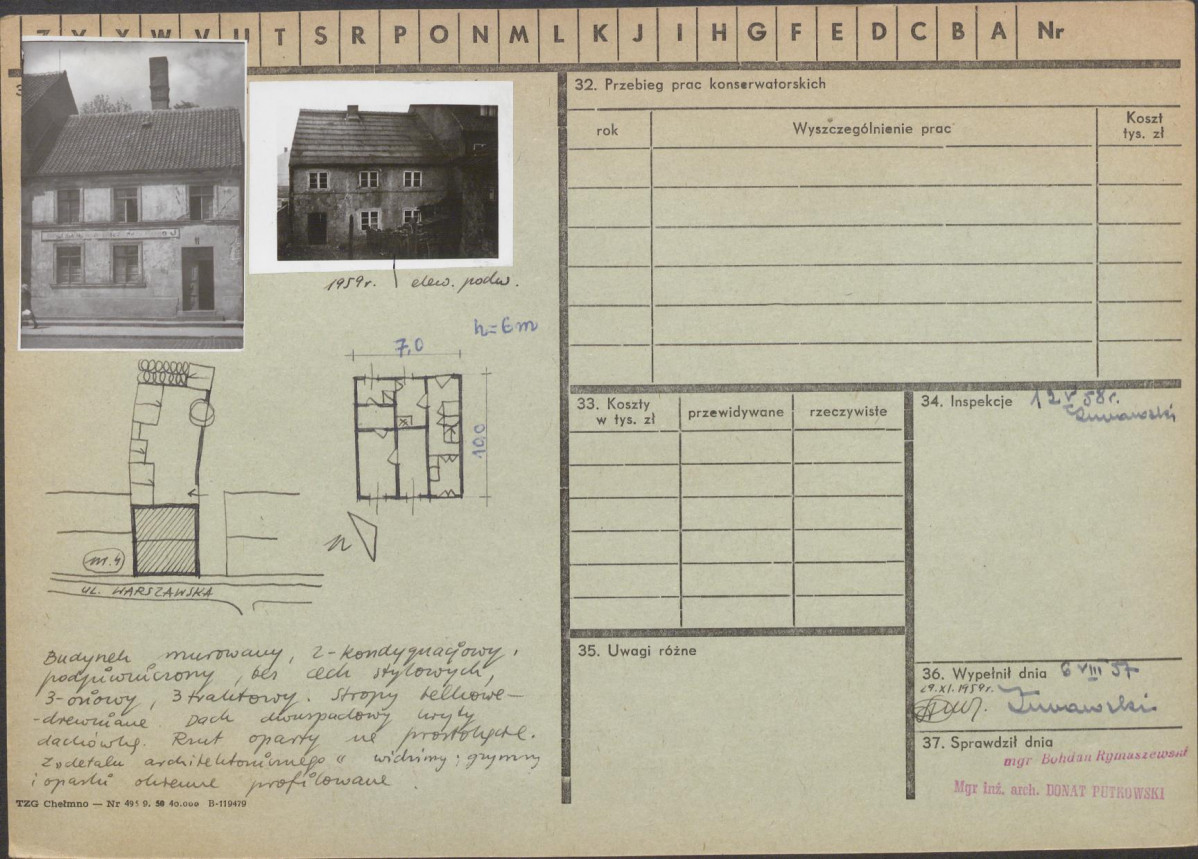 Z Y X W V U T S R P O N M L K J I H G F E D C B A Nr
1959r. elew. podw.
h=6m
7,0
10,0
n
m.4
UL. WARSZAWSKA
Budynek murowany, 2-kondygnacjowy,
podpiwniczony, bez cech stylowych,
3-osiowy, 3 traktowy. Stropy belkowe-
-drewniane. Dach dwuspadowy kryty
dachówką. Rzut oparty na prostokącie.
Z "detalu architektonicznego" widzimy: gzymsy
i opaski okienne profilowane.
TZG Chełmno — Nr 495 9. 50 40.000 B-119479
32. Przebieg prac konserwatorskich
rok
Wyszczególnienie prac
Koszt
tys. zł
33. Koszty
w tys. zł
przewidywane
rzeczywiste
34. Inspekcje 12 V 58r.
35. Uwagi różne
36. Wypełnił dnia 6 VIII 57
29.XI.1959r.
37. Sprawdził dnia
mgr Bohdan Rymaszewski
Mgr inż. arch. DONAT PUTKOWSKI